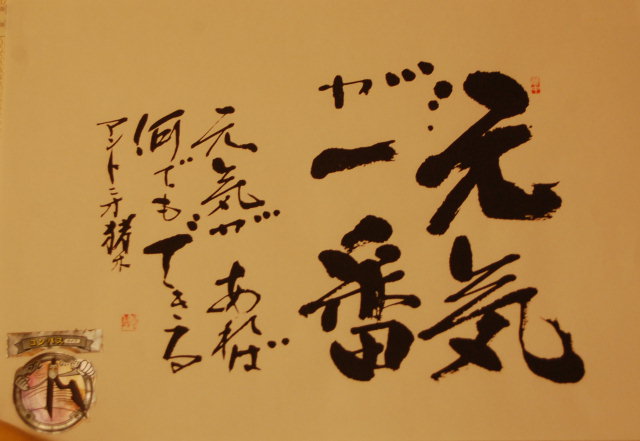 元気
が一番
元気があれば
何でもできる
アントニオ猪木